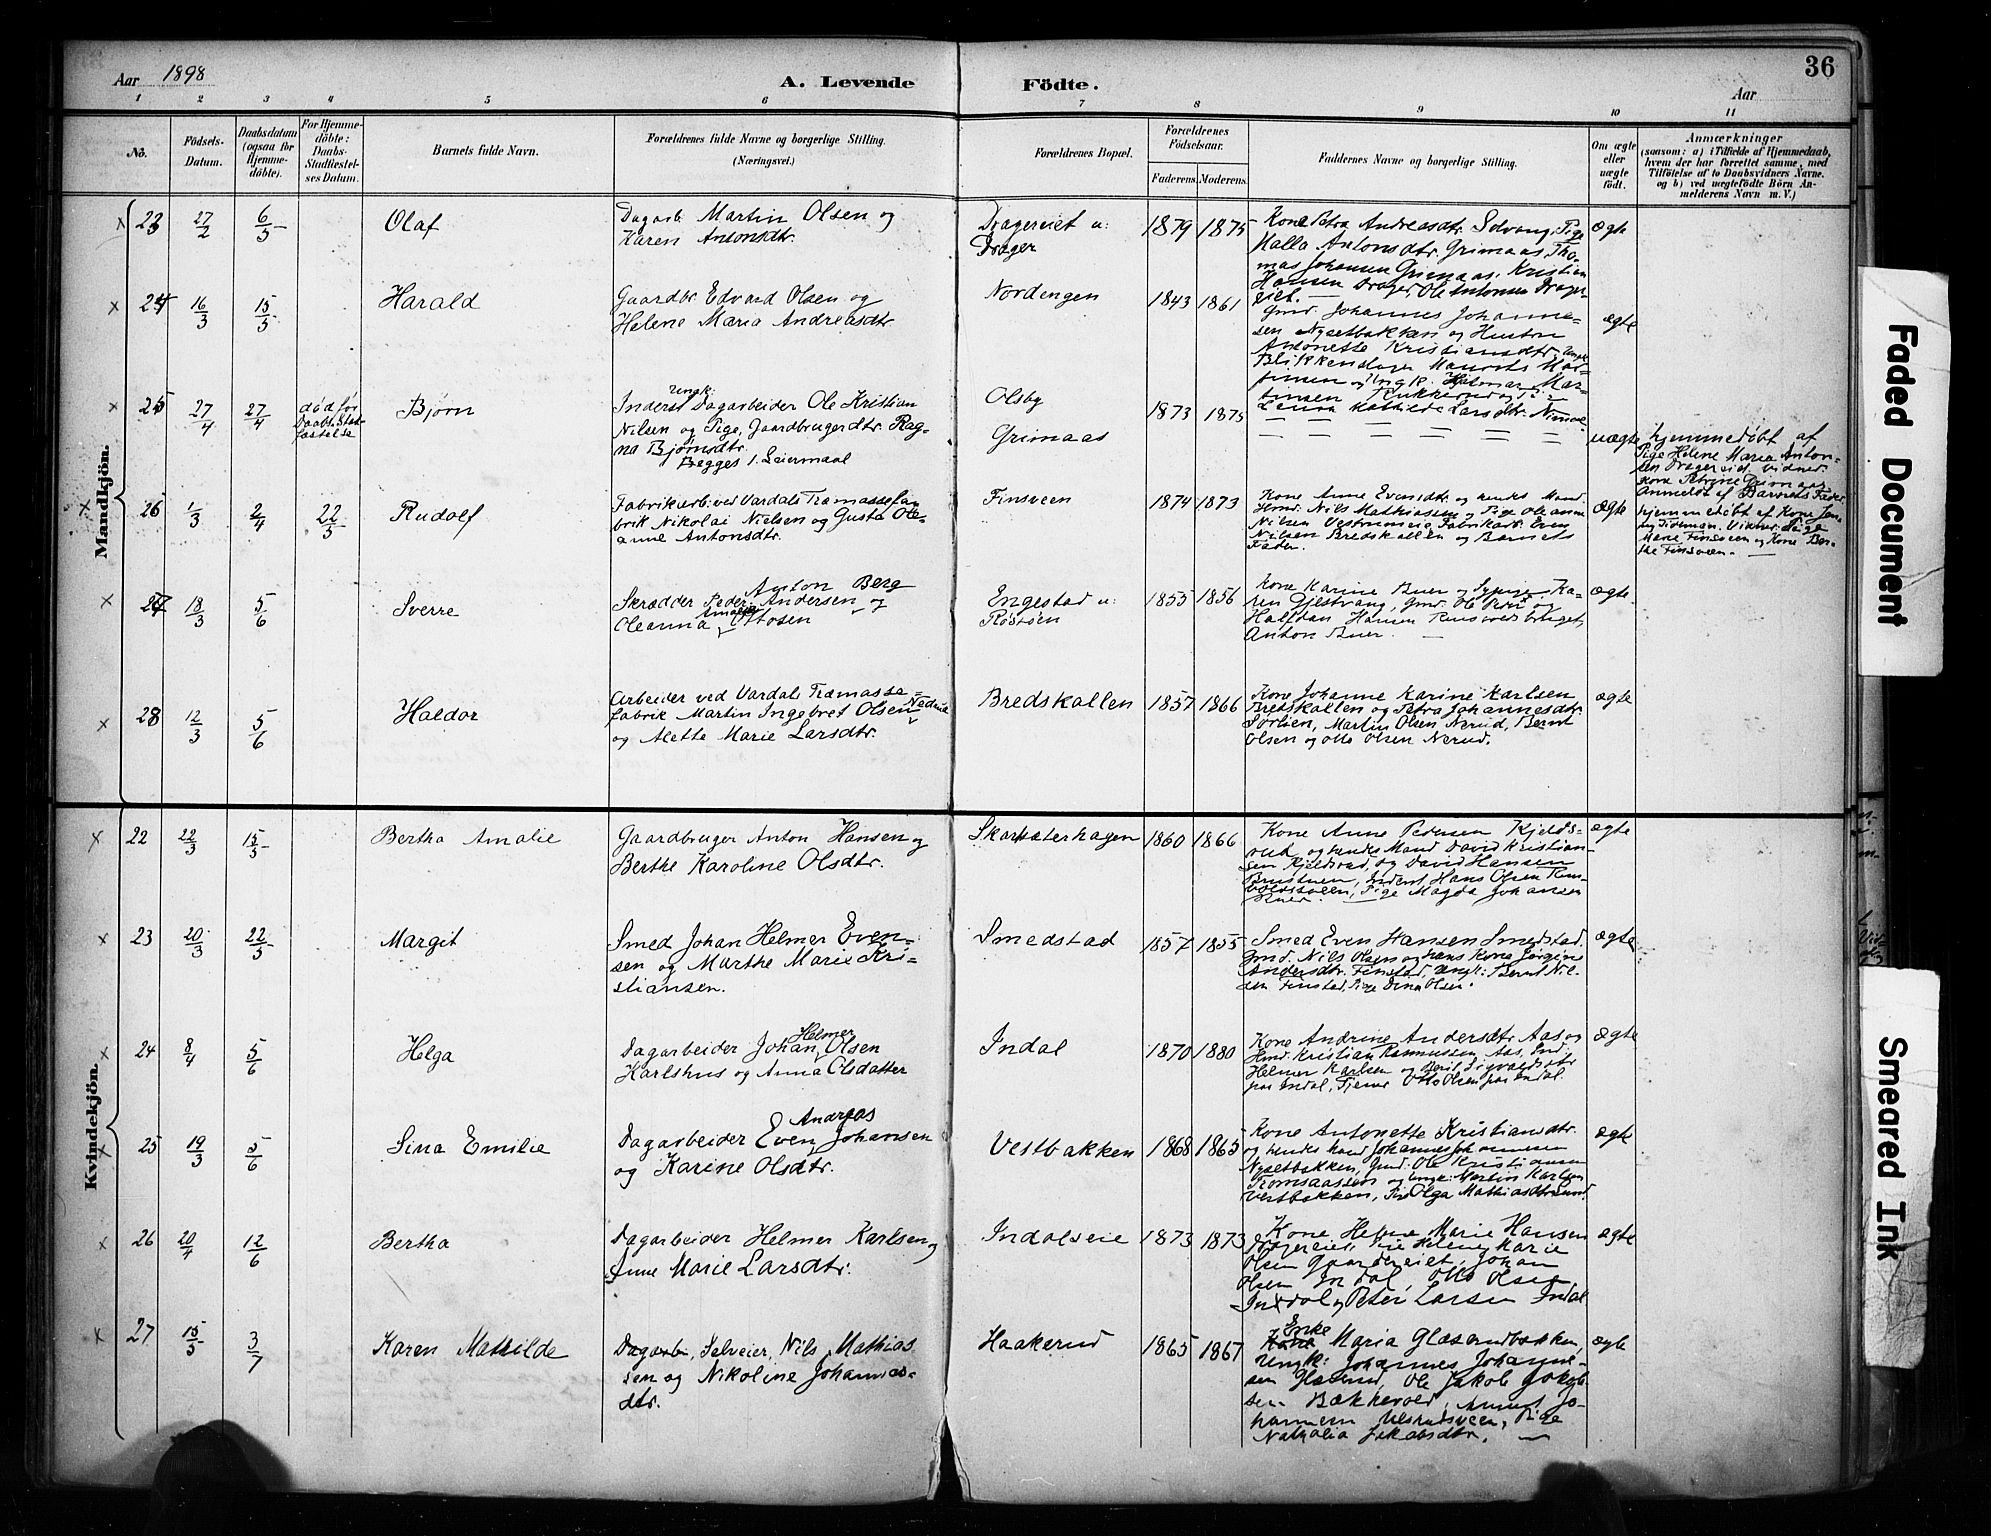 Aar 1898
A. Levende Födte.
36
Aar
1 2 3 4 5 6 7 8 9 10 11
No.
Födsels-Datum.
Daabsdatum (ogsaa for Hjemmedöbte).
For Hjemmedöbte: Daabs-Stadfæstelses Datum.
Barnets fulde Navn.
Forældrenes fulde Navne og borgerlige Stilling. (Næringsvei.)
Forældrenes Bopæl.
Forældrenes Födselsaar.
Faderens. Moderens.
Faddernes Navne og borgerlige Stilling.
Om ægte eller uægte födt.
Anmærkninger
(saasom: a) i Tilfælde af Hjemmedaab, hvem der har forrettet samme, med Tilföielse af to Daabsvidners Navne. og b) ved uægtefödte Börn Anmelderens Navn m. V.)
Mandkjön.
23 27/2 6/5 Olaf
Dagarb. Martin Olsen og
Karen Antonsdtr.
Dragereiet u:
Drager
1879 1875
Kone Petra Andreasdtr. Solvang, Pige
Kalla Antonsdtr. Grimaas, Tho-
mas Johansen Grimaas, Kristian
Hansen Drager, Ole Antonsen Drager-
eiet.
ægte
24 16/3 15/5 Harald
Gaardbr. Edvard Olsen og
Helene Maria Andreasdtr.
Nordengen
1843 1861
Gmd. Johannes Johanne-
sen Nysetbakken og Hustru
Antonette Kristiansdtr. Ungk.
Blikkenslager
ægte
25 27/4 27/4 død før
Daabs. Stad-
fæstelse
Bjørn
Ungk.
Inderst Dagarbeider Ole Kristian
Nilsen og Pige, Gaardbrugerdtr. Rag-
na Bjørnsdtr.
Begges 1. Leiermaal
Olsby
Grimaas
1873 1875
Laura Mathilde Larsdtr.
uægte
hjemmedøbt af
Pige Helene Maria Anton-
sen Dragereiet. Vidner:
Kone Petrine Grimaas
Anmeldt af Barnets Fader
26 1/3 2/4 22/5 Rudolf
Fabrikarb. ved Vardals Træmassefa-
brik Nikolai Nielsen og Gusta Ole-
anne Antonsdtr.
Finsveen
1874 1873
Kone Anne Evensdtr. og hendes Mand
Gmd. Nils Mathiassen og Pige Oleanne
Nilsen Vestrumeie, Fabrikarb. Even
Nilsen Bredskallen og Barnets
Fader.
ægte
hjemmedøbt af Kone Jen-
ny Tideman. Vidner: Pige
Marie Finsveen og Kone Ber-
the Finsveen.
27 18/3 5/6 Sverre
Anton Berg
Skrædder Peder Andersen og
Oleanna Amalia Ottosen
Engestad u:
Røstøen
1855 1856
Kone Karine Buer og Sypige Ka-
ren Gjestvang, Gmd. Ole og
Halfdan Hansen
Anton Buer.
ægte
28 12/3 5/6 Haldor
Arbeider ved Vardals Træmasse-
fabrik Martin Ingebret Olsen
og Alette Marie Larsdtr.
Bredskallen
1857 1866
Kone Johanne Karine Karlsen
Bredskallen og Petra Johannesdtr.
Sørlien, Martin Olsen Nerud, Bernt
Olsen og Otto Olsen Nerud.
ægte
Kvindekjön.
22 22/3 15/5 Bertha Amalie
Gaardbruger Anton Hansen og
Berthe Karoline Olsdtr.
Skartsæterhagen
1860 1866
Kone Anne Pedersen Kjelds-
rud, og hendes Mand David Kristian-
sen Kjeldsrud, og David Hansen
Hans Olsen
Pige Magda Johansen
ægte
23 20/3 22/5 Margit
Smed Johan Helmer Even-
sen og Marthe Marie Kri-
stiansen.
Smedstad
1857 1855
Smed Even Hansen Smedstad.
Gmd. Nils Olsen og hans Kone Jørgine
Andersdtr. Finstad, Ungk: Bernt Nil-
sen Finstad, Pige Dina Olsen.
ægte
24 8/4 5/6 Helga
Helmer
Dagarbeider Johan Olsen
Karlshus og Anna Olsdatter
Indal
1870 1880
Kone Andrine Andersdtr. Aas og
Gmd. Kristian Rasmussen Aas, Ind.
Helmer Karlsen og Berit Sigvaldsdtr
paa Indal, Tjener Otto Olsen paa Indal.
ægte
25 19/3 5/6 Sina Emilie
Andreas
Dagarbeider Even Johansen
og Karine Olsdtr.
Vestbakken
1868 1865
Kone Antonette Kristiansdtr.
og hendes Mand Johannes Johannessen
Nysetbakken, Gmd: Ole Kristiansen
og Ungk: Martin Karlsen
Vestbakken, Pige Olga Mathiasdtr.
ægte
26 20/4 12/6 Bertha
Dagarbeider Helmer Karlsen og
Anne Marie Larsdtr.
Indalseie
1873 1873
Kone Helene Marie Hansen
Dragereiet, Pige Helene Marie
Olsen Gaardereiet, Johan
Olsen Indal, Otto Olsen
Indal og Peter Larsen Indal
ægte
27 15/5 3/7 Karen Mathilde
Dagarb., Selveier, Nils Mathias
sen og Nikoline Johannes-
dtr.
Haakerud
1865 1867
Enke
Kone Maria Glæsrudbakken,
Ungk: Johannes Johanne-
sen Glæsrud, Ole Jakob Jakob-
sen Bækkevold, August Jo-
hannesen Ulsrudsveen, Pige
Nathalia Jakobsdtr.
ægte
Faded Document
Smeared Ink